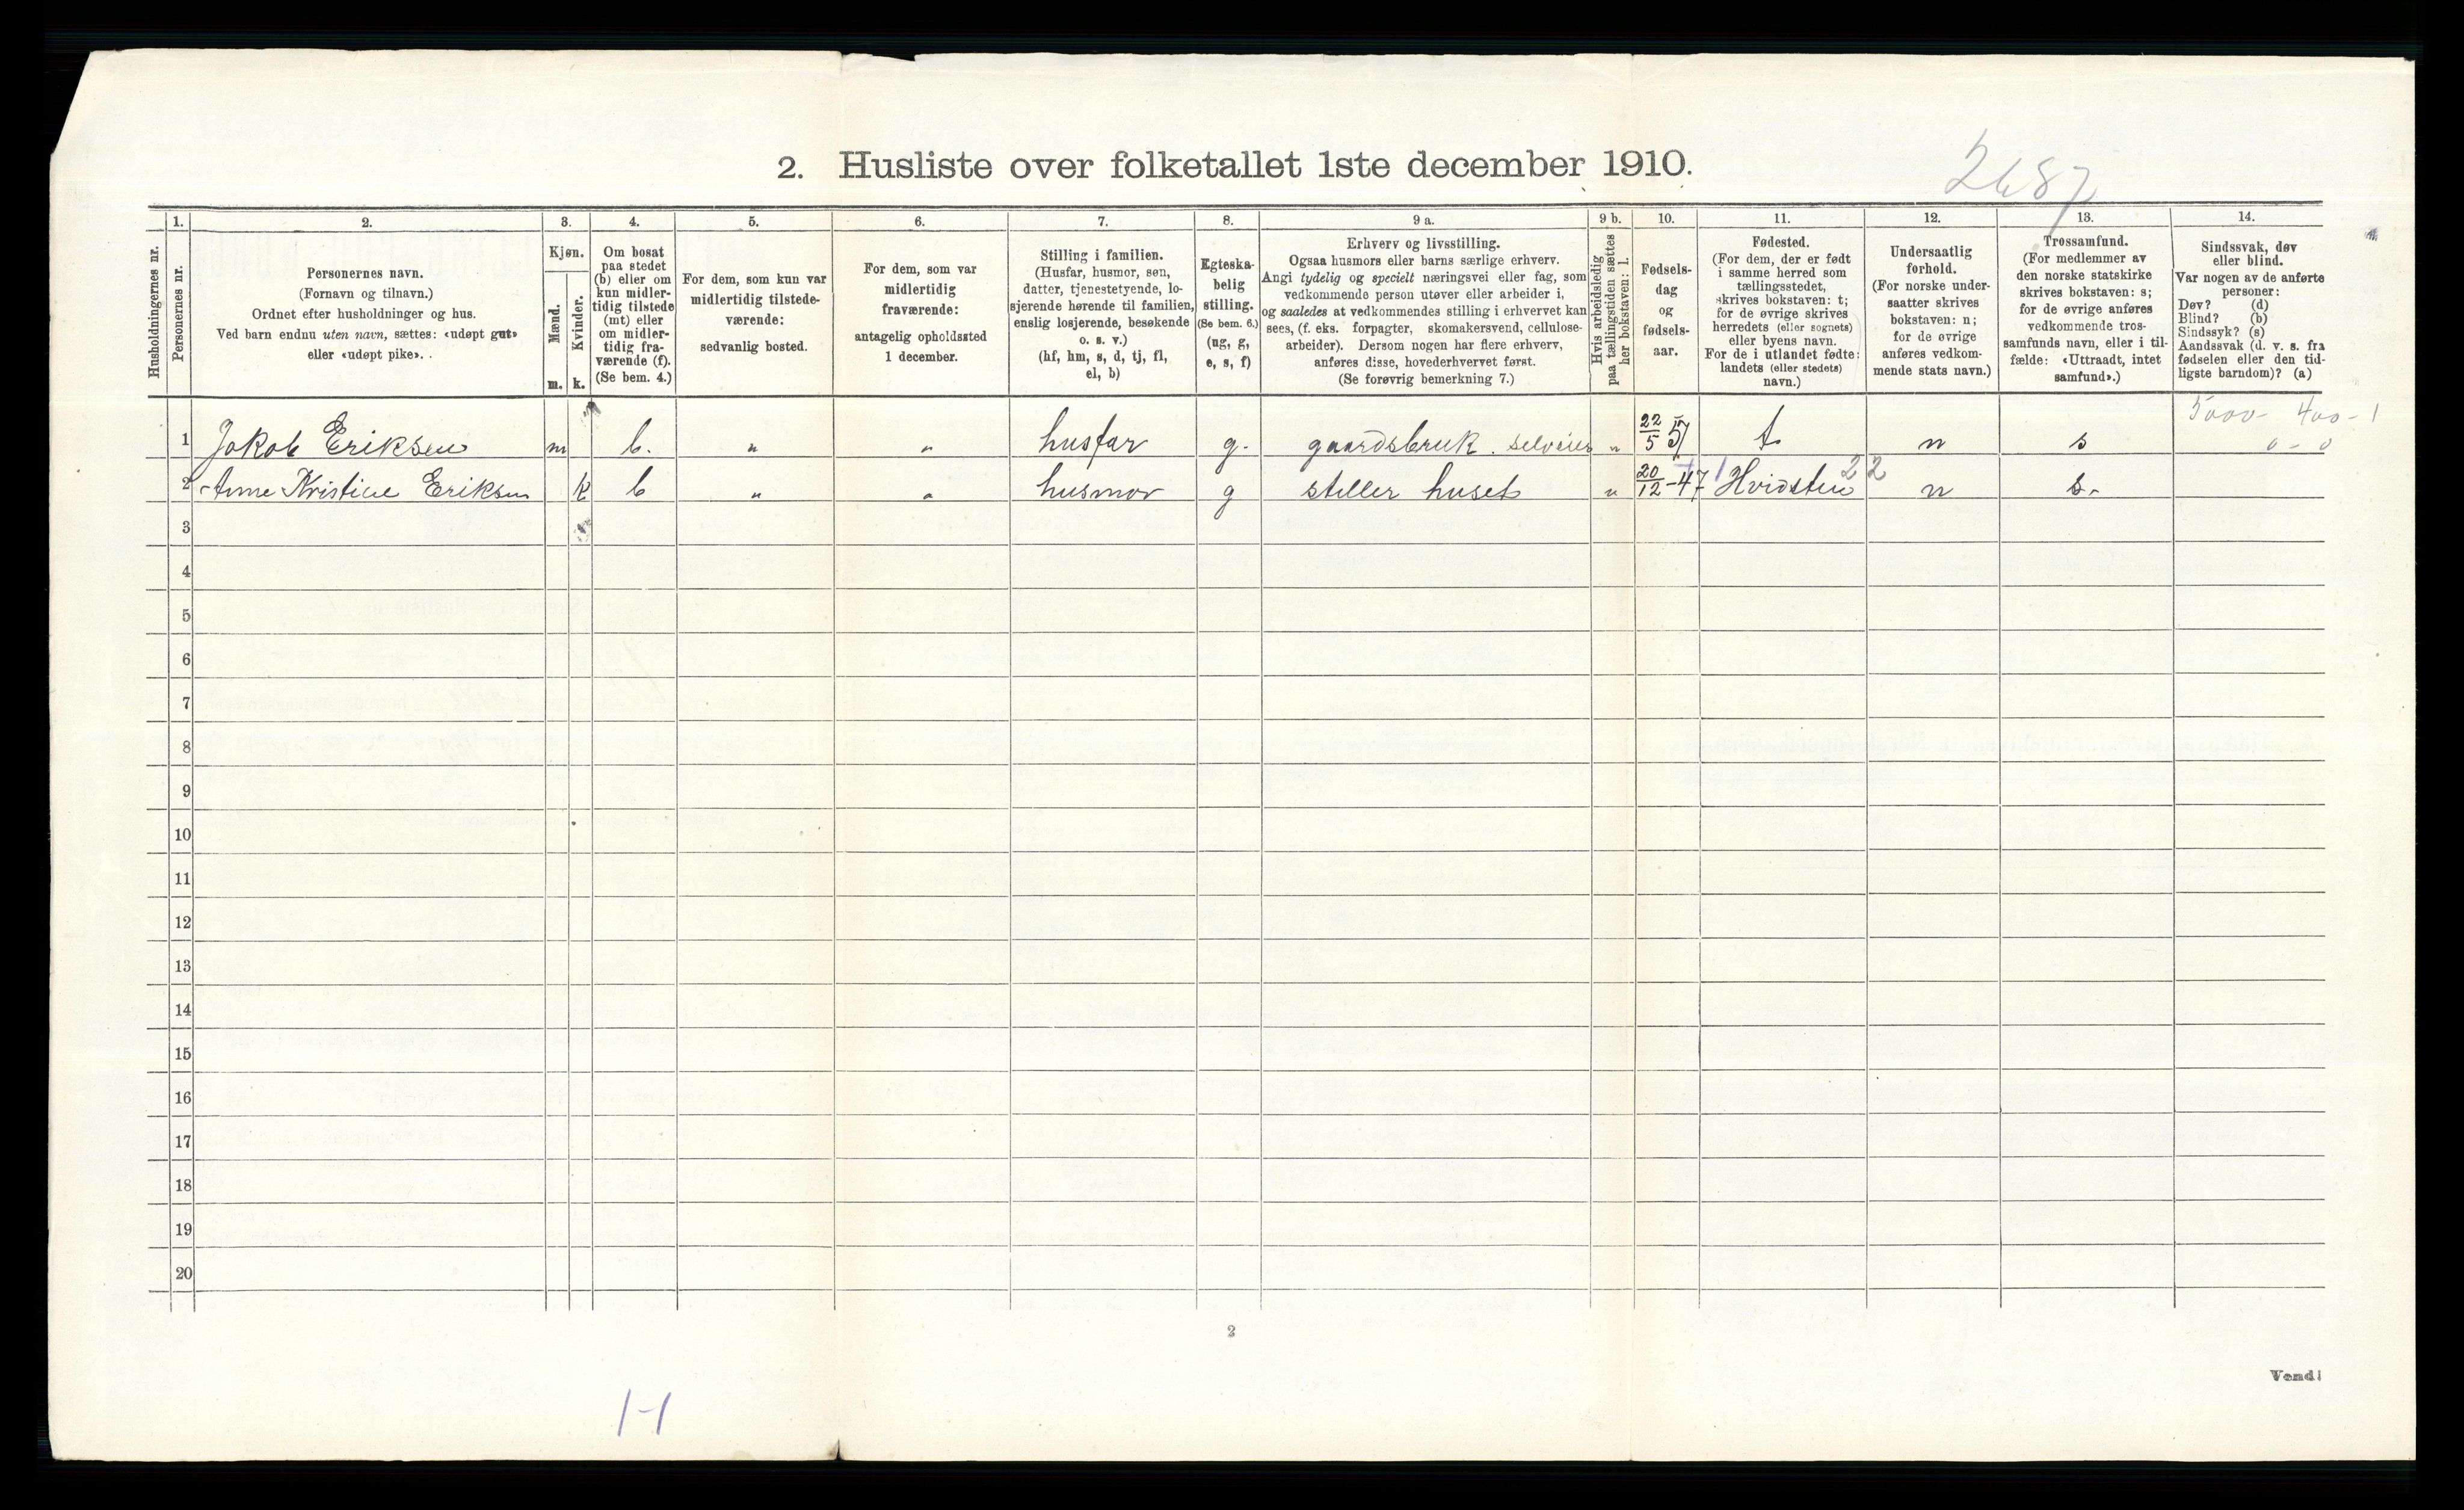 2. Husliste over folketallet 1ste december 1910.
1. 2. 3. 4. 5. 6. 7. 8. 9 a. 9 b. 10. 11. 12. 13. 14.
Husholdningernes nr.
Personernes nr.
Personernes navn.
(Fornavn og tilnavn.)
Ordnet efter husholdninger og hus.
Ved barn endnu uten navn, sættes: «udøpt gut»
eller «udøpt pike».
Kjøn.
Mænd.
Kvinder.
m. k.
Om bosat
paa stedet
(b) eller om
kun midler-
tidig tilstede
(mt) eller
om midler-
tidig fra-
værende (f).
(Se bem. 4.)
For dem, som kun var
midlertidig tilstede-
værende:
sedvanlig bosted.
For dem, som var
midlertidig
fraværende:
antagelig opholdssted
1 december.
Stilling i familien.
(Husfar, husmor, søn,
datter, tjenestetyende, lo-
sjerende hørende til familien,
enslig losjerende, besøkende
o. s. v.)
(hf, hm, s, d, tj, fl,
el, b)
Egteska-
belig
stilling.
(Se bem. 6.)
(ug, g,
e, s, f)
Erhverv og livsstilling.
Ogsaa husmors eller barns særlige erhverv.
Angi tydelig og specielt næringsvei eller fag, som
vedkommende person utøver eller arbeider i,
og saaledes at vedkommendes stilling i erhvervet kan
sees, (f. eks. forpagter, skomakersvend, cellulose-
arbeider). Dersom nogen har flere erhverv,
anføres disse, hovederhvervet først.
(Se forøvrig bemerkning 7.)
Hvis arbeidsledig
paa tællingstiden sættes
her bokstaven: l.
Fødsels-
dag
og
fødsels-
aar.
Fødested.
(For dem, der er født
i samme herred som
tællingsstedet,
skrives bokstaven: t;
for de øvrige skrives
herredets (eller sognets)
eller byens navn.
For de i utlandet fødte:
landets (eller stedets)
navn.)
Undersaatlig
forhold.
(For norske under-
saatter skrives
bokstaven: n;
for de øvrige
anføres vedkom-
mende stats navn.)
Trossamfund.
(For medlemmer av
den norske statskirke
skrives bokstaven: s;
for de øvrige anføres
vedkommende tros-
samfunds navn, eller i til-
fælde: «Uttraadt, intet
samfund».)
Sindssvak, døv
eller blind.
Var nogen av de anførte
personer:
Døv? (d)
Blind? (b)
Sindssyk? (s)
Aandssvak (d. v. s. fra
fødselen eller den tid-
ligste barndom)? (a)
5000 - 400 - 1
0 - 0
1 Jakob Eriksen m b. " " husfar g. gaardsbruk. selveier " 22/5 t n s
2 Anne Kristine Eriksen k b " " husmor g steller huset " 20/12-47 Hvidsten 22 n s.
3
4
5
6
7
8
9
10
11
12
13
14
15
16
17
18
19
20
2
Vend!
1-1